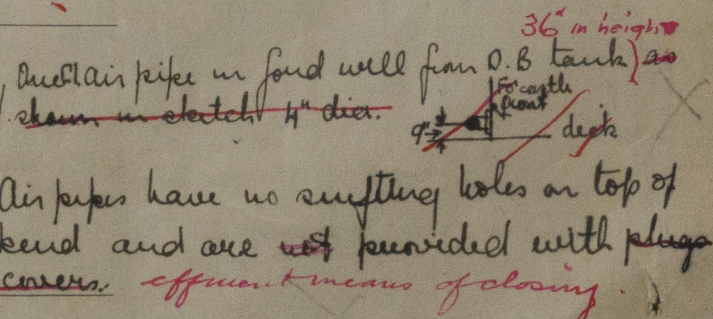 36" in height
One air pipe in ford well from D.B tank) as
shown in sketch 4" dia.
Forcastle
front
9"
deck
Air pipes have no snifting holes on top of
bend and are not provided with plugs
covers. efficient means of closing.